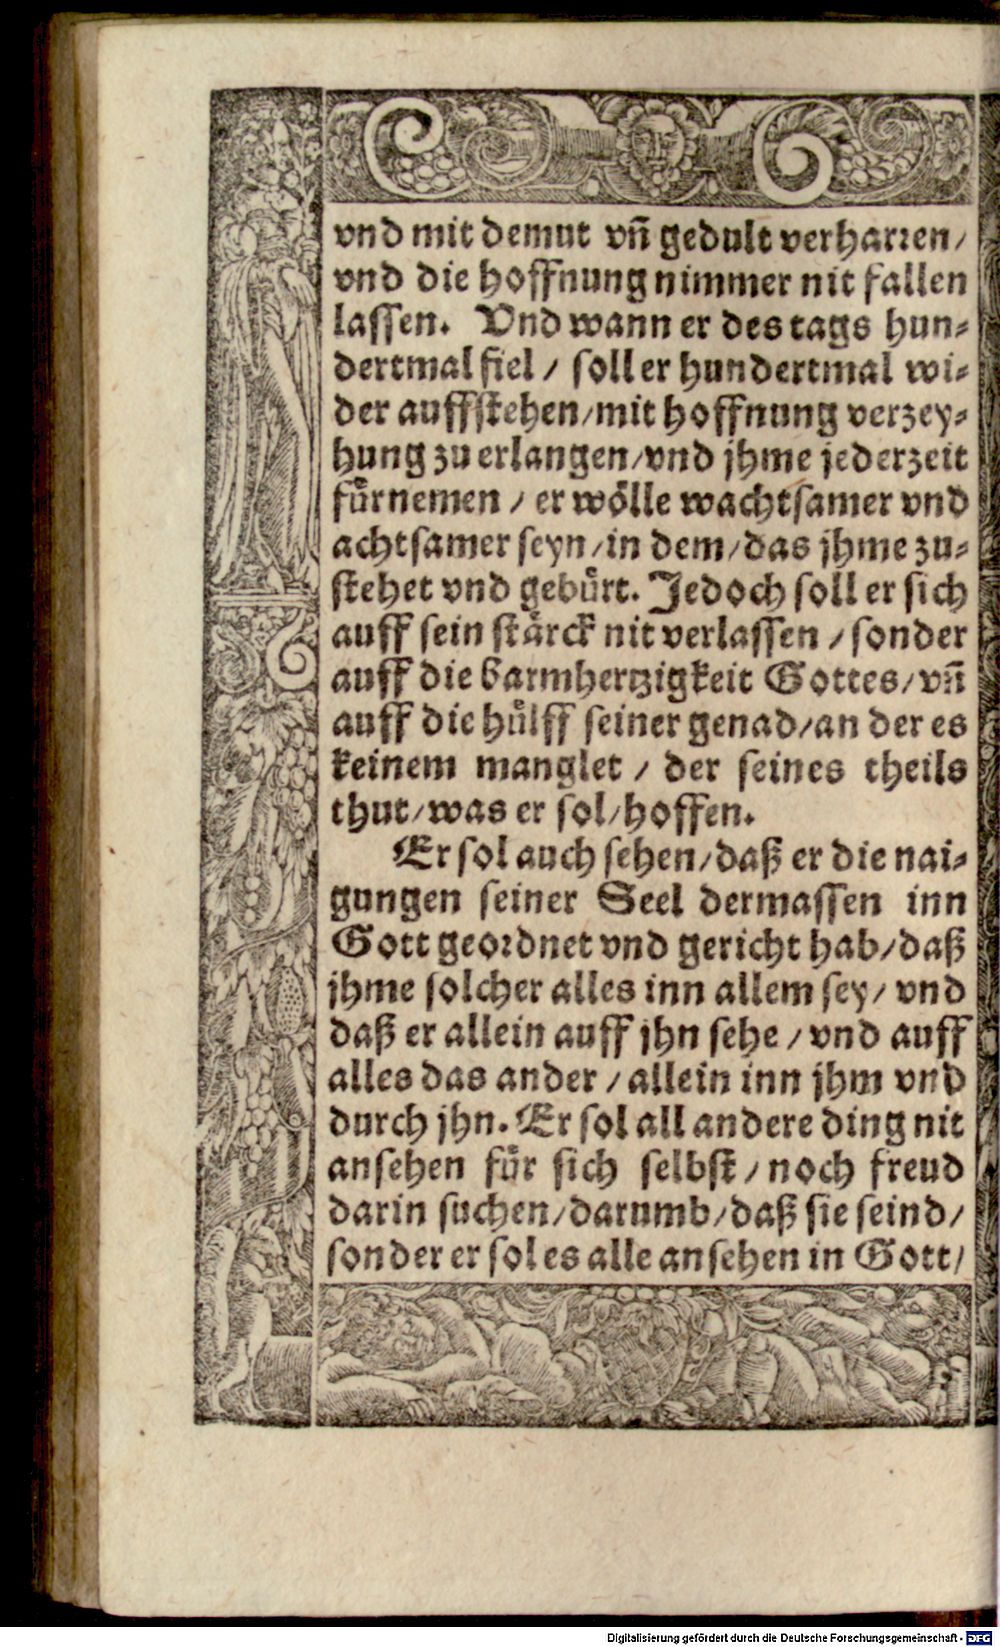 vnd mit demut vñ gedult verharren/
vnd die hoffnung nimmer nit fallen
lassen. Vnd wann er des tags hun⸗
dertmal fiel / soll er hundertmal wi⸗
der auffstehen/mit hoffnung verzey⸗
hung zu erlangen/vnd jhme jederzeit
fuͤrnemen / er woͤlle wachtsamer vnd
achtsamer seyn/in dem/das jhme zu⸗
stehet vnd gebuͤrt. Jedoch soll er sich
auff sein staͤrck nit verlassen / sonder
auff die barmhertzigkeit Gottes/vñ
auff die huͤlff seiner genad/an der es
keinem manglet / der seines theils
thut/was er sol/hoffen.
Er sol auch sehen/daß er die nai⸗
gungen seiner Seel dermassen inn
Gott geordnet vnd gericht hab/daß
jhme solcher alles inn allem sey/ vnd
daß er allein auff jhn sehe / vnd auff
alles das ander / allein inn jhm vnd
durch jhn. Er sol all andere ding nit
ansehen fuͤr sich selbst / noch freud
darin suchen/darumb/daß sie seind/
sonder er sol es alle ansehen in Gott/
Digitalisierung gefördert durch die Deutsche Forschungsgemeinschaft - DFG